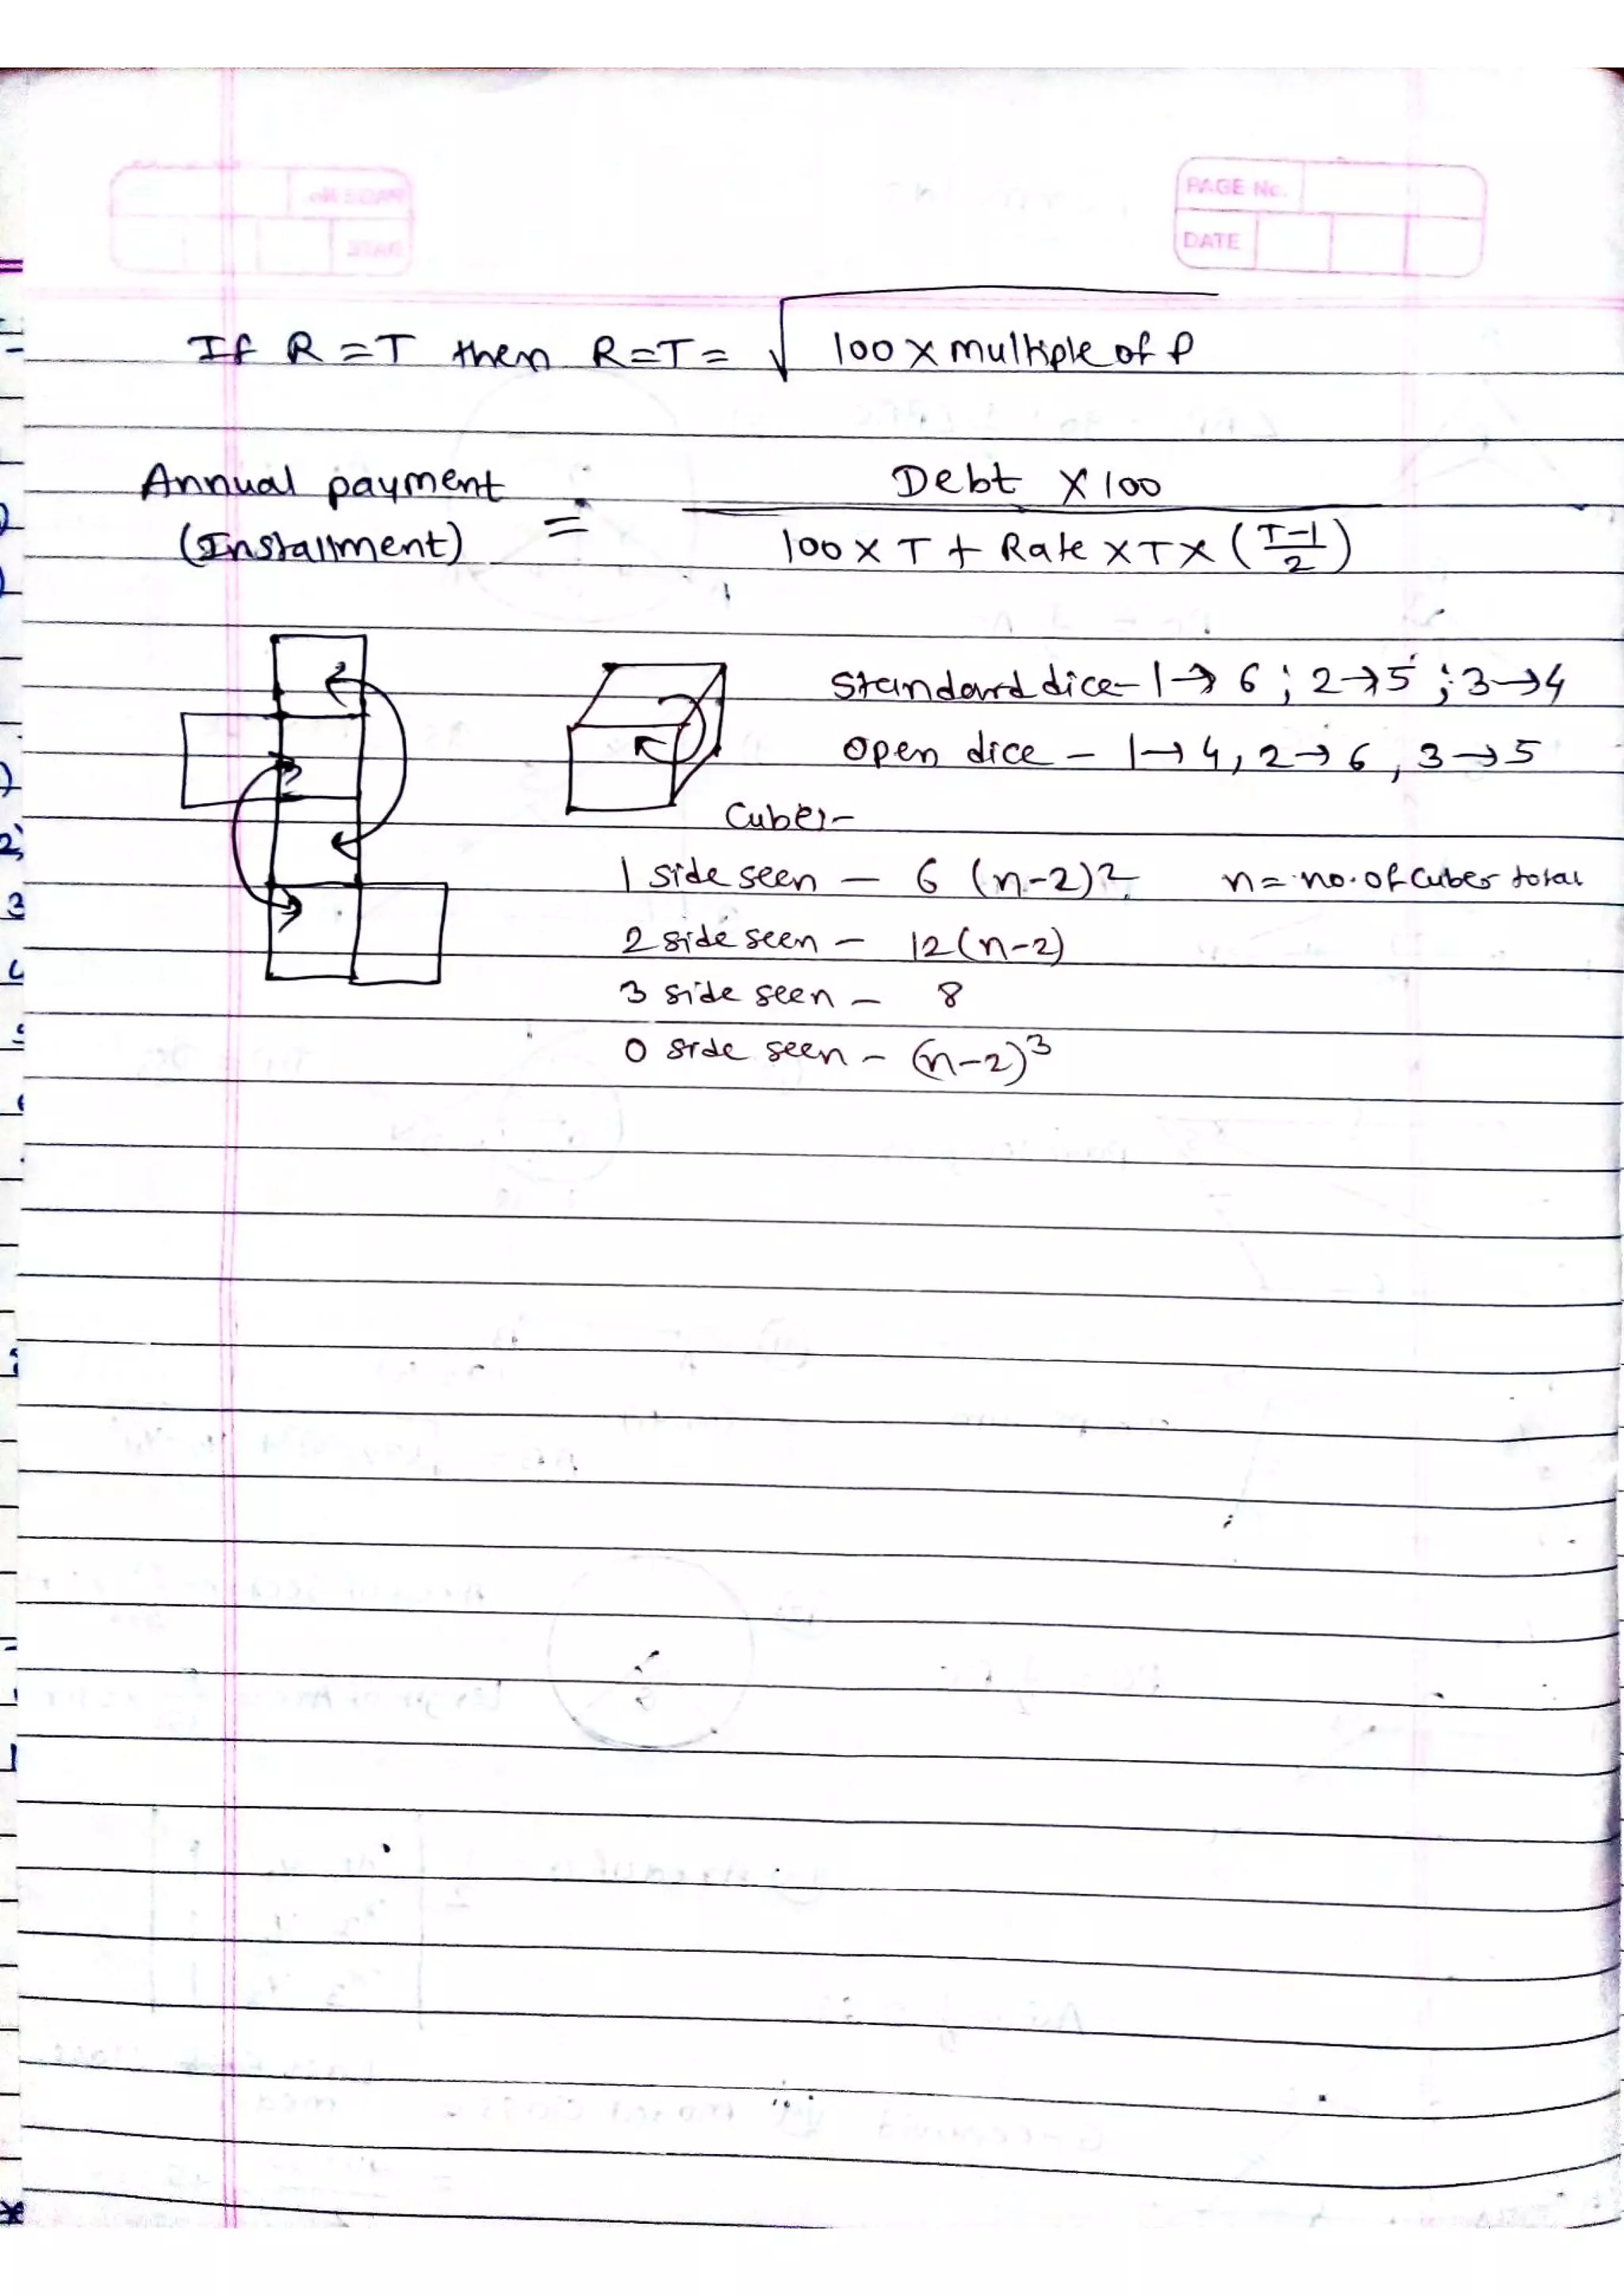 PAGE No.
DATE
If R = T then R=T= √100 x multiple of P
Annual payment (Installment) = Debt X 100 / 100 x T + Rate x T x (T-1/2)
Standard dice- 1→ 6 ; 2→5 ; 3→4
open dice - 1→ 4, 2→ 6, 3→5
Cubes-
1 side seen - 6 (n-2)2 n = no. of cubes total
2 side seen - 12(n-2)
3 side seen - 8
0 side seen - (n-2)3